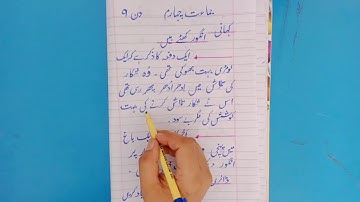 جماعت چہارم دن 9
کہانی
انگور کھٹے ہیں
ایک دفعہ کا ذکر ہے کہ ایک
لومڑی بہت بھوکی تھی۔ وہ شکار
کی تلاش میں اِدھر اُدھر پھر رہی تھی
اس نے شکار تلاش کرنے کی بہت
کوشش کی مگر بے سود۔
آخر باغ
میں پہنچی پر
انگور